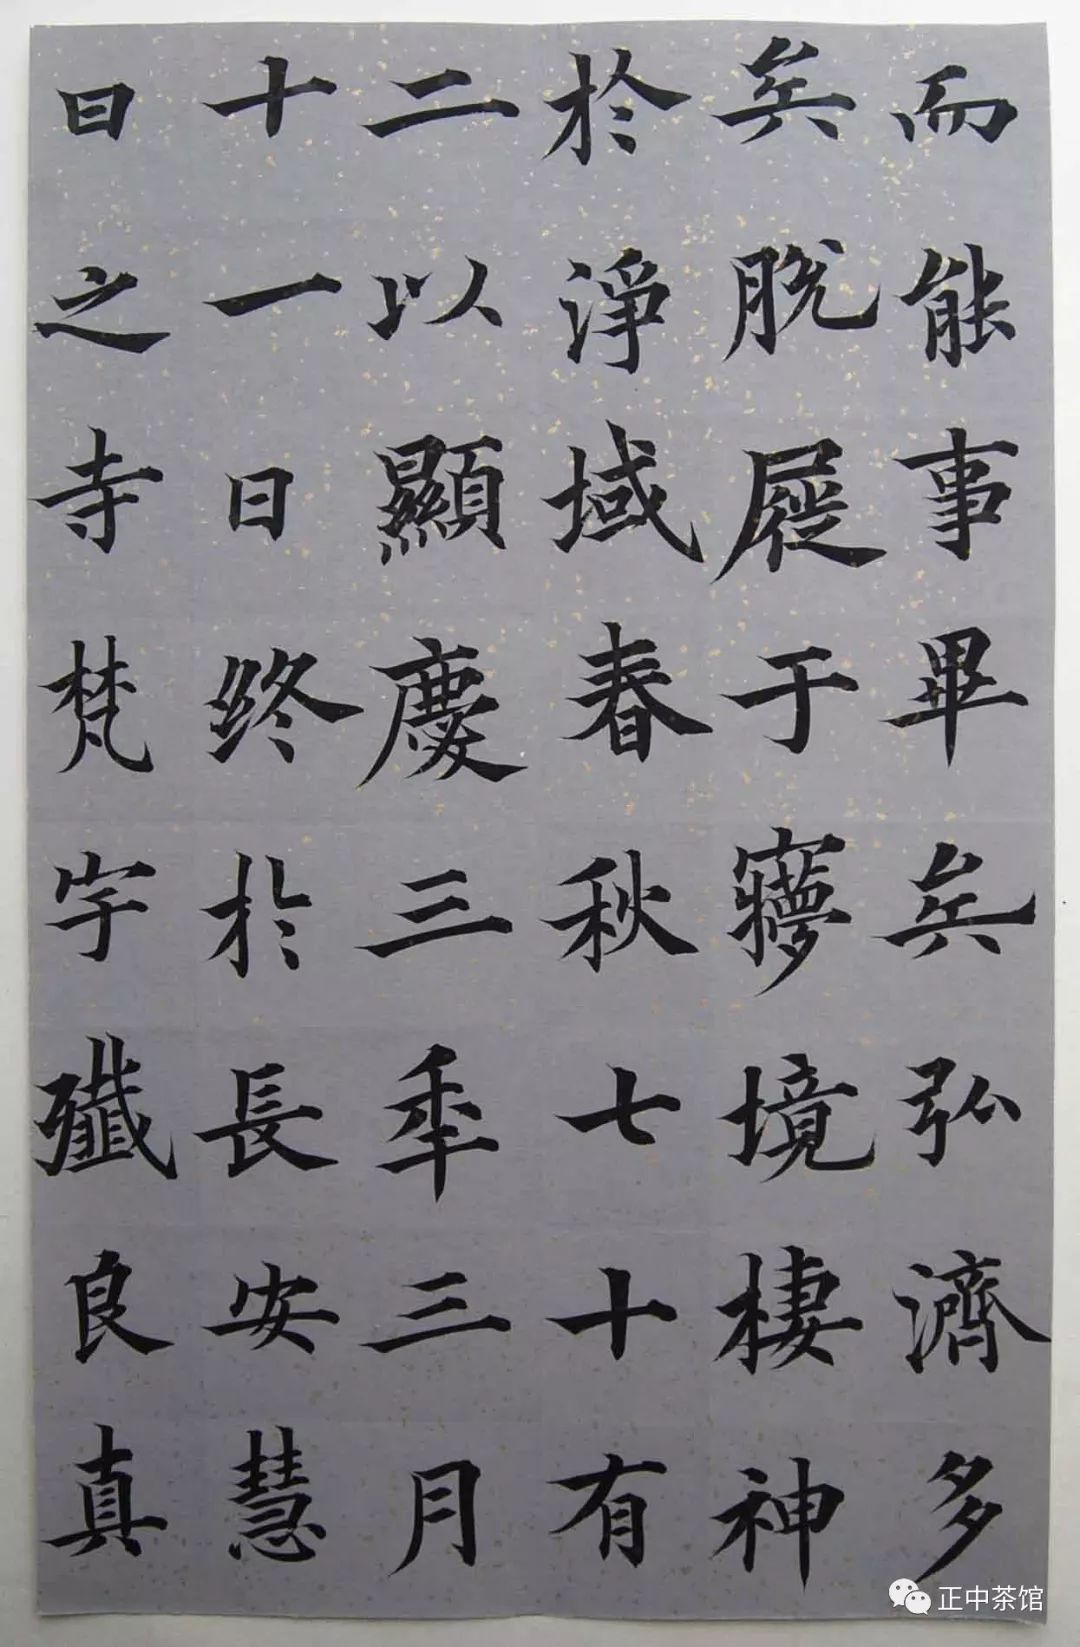 而能事畢矣弘濟多
矣脱屣于㝱境棲神
於淨域春秋七十有
二以顯慶三年三月
十一日终於長安慧
日之寺梵宇殲良真
正中茶馆